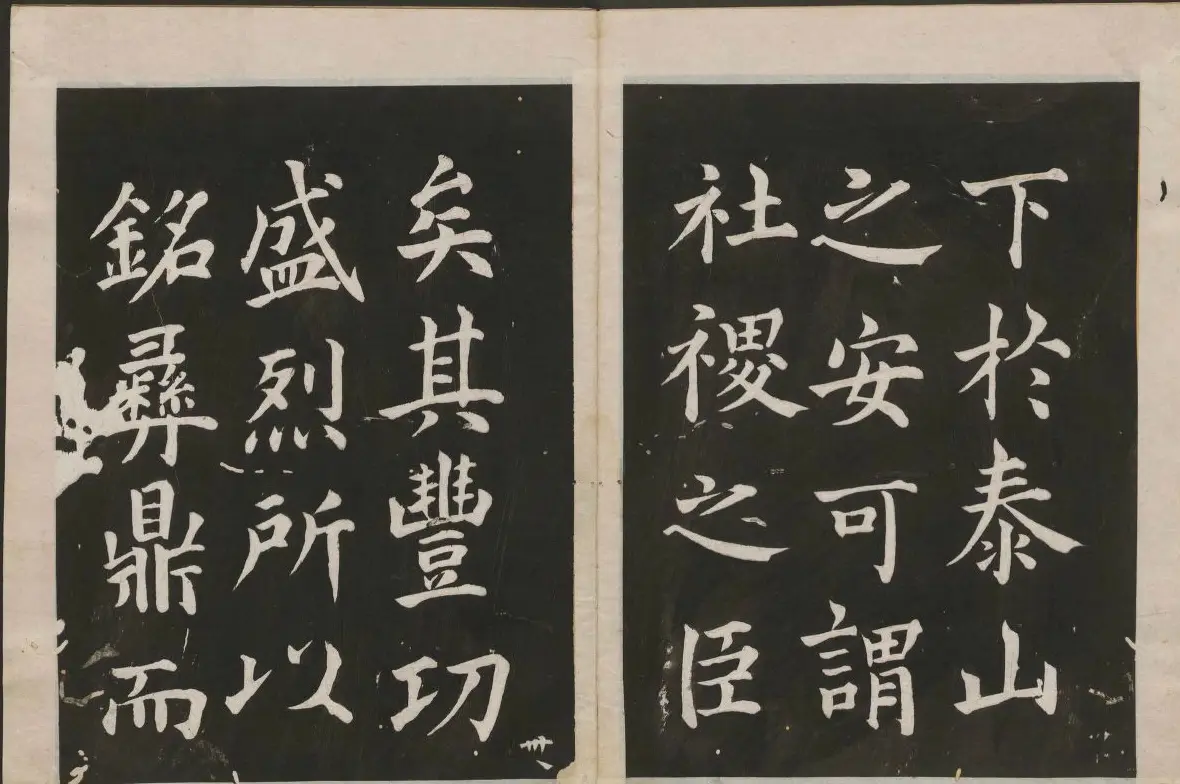 下於泰山
之安可謂
社稷之臣
矣其豐功
盛烈所以
銘彝鼎而
卌